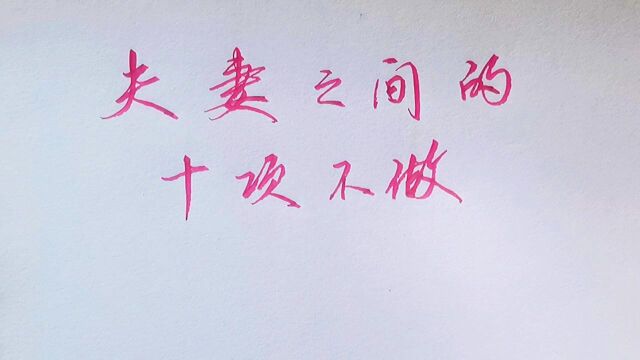 夫妻之间的
十项不做